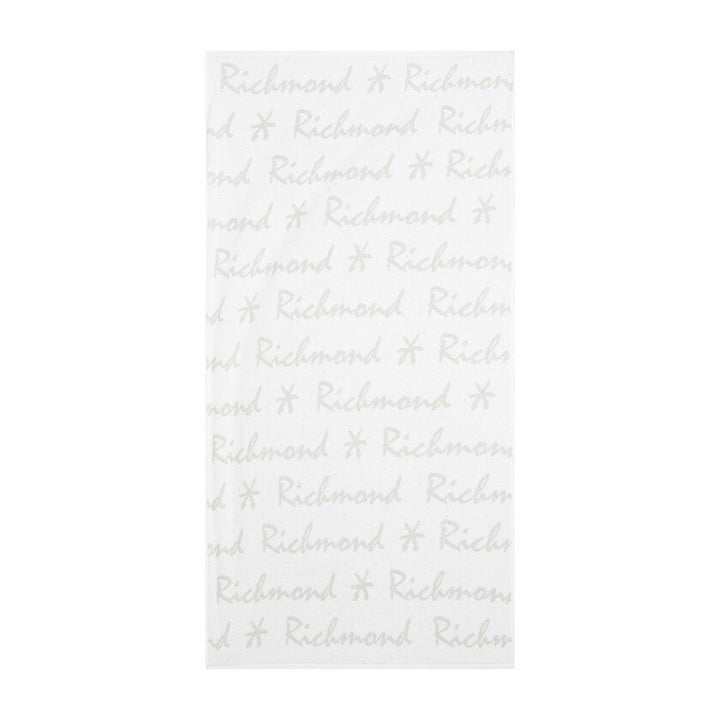 Richmond Richmon
nd Richmond Richm
ond Richmond Richm
mond Richmond
Richmond Richmon
d Richmond Richm
nd Richmond Richm
mond Richmond
Richmond Richmon
d Richmond Richm
ond Richmond Richm
Richmond Richmon
d Richmond Richm